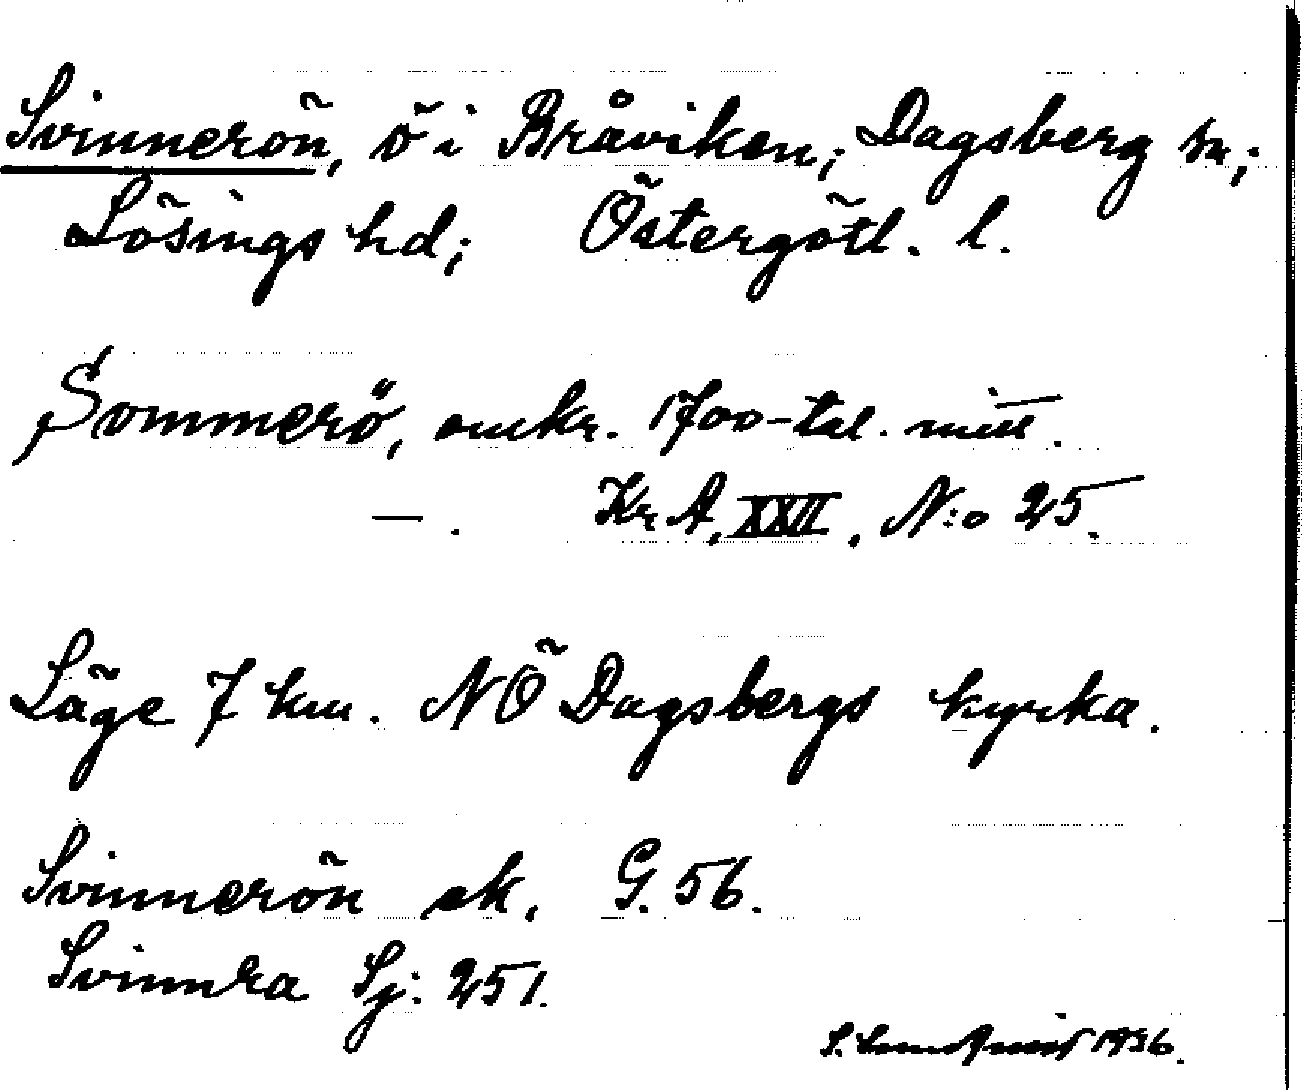 Svinnerön, ö i Bråviken; Dagsberg sn;
Lösings hd; Östergötl. l.
Svmmerö, omkr. 1700-tal. mitt.
— . Kr A, XXII, N:o 25.
Läge 7 km. NÖ Dagsbergs kyrka.
Svinnerön ek. G. 56.
Svinnra Sj: 251.
S. 1936.